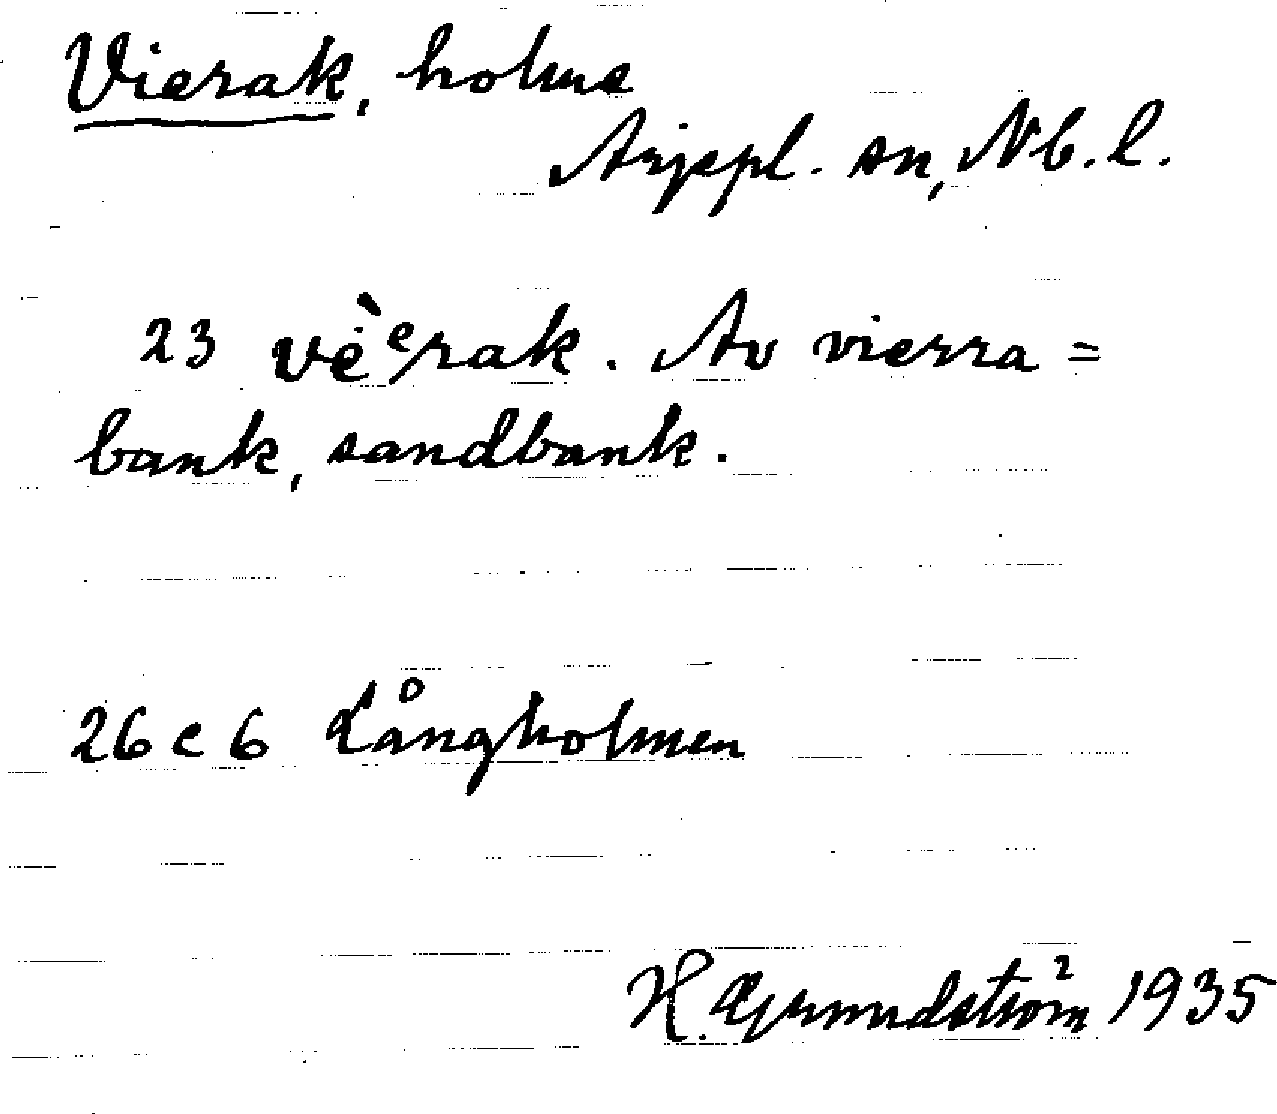 Vierak, holme
Arjepl. sn, Nb. l.
23 vè̇ᵉrak. Av vierra =
bank, sandbank.
26 c 6 Långholmen
H. Grundström 1935